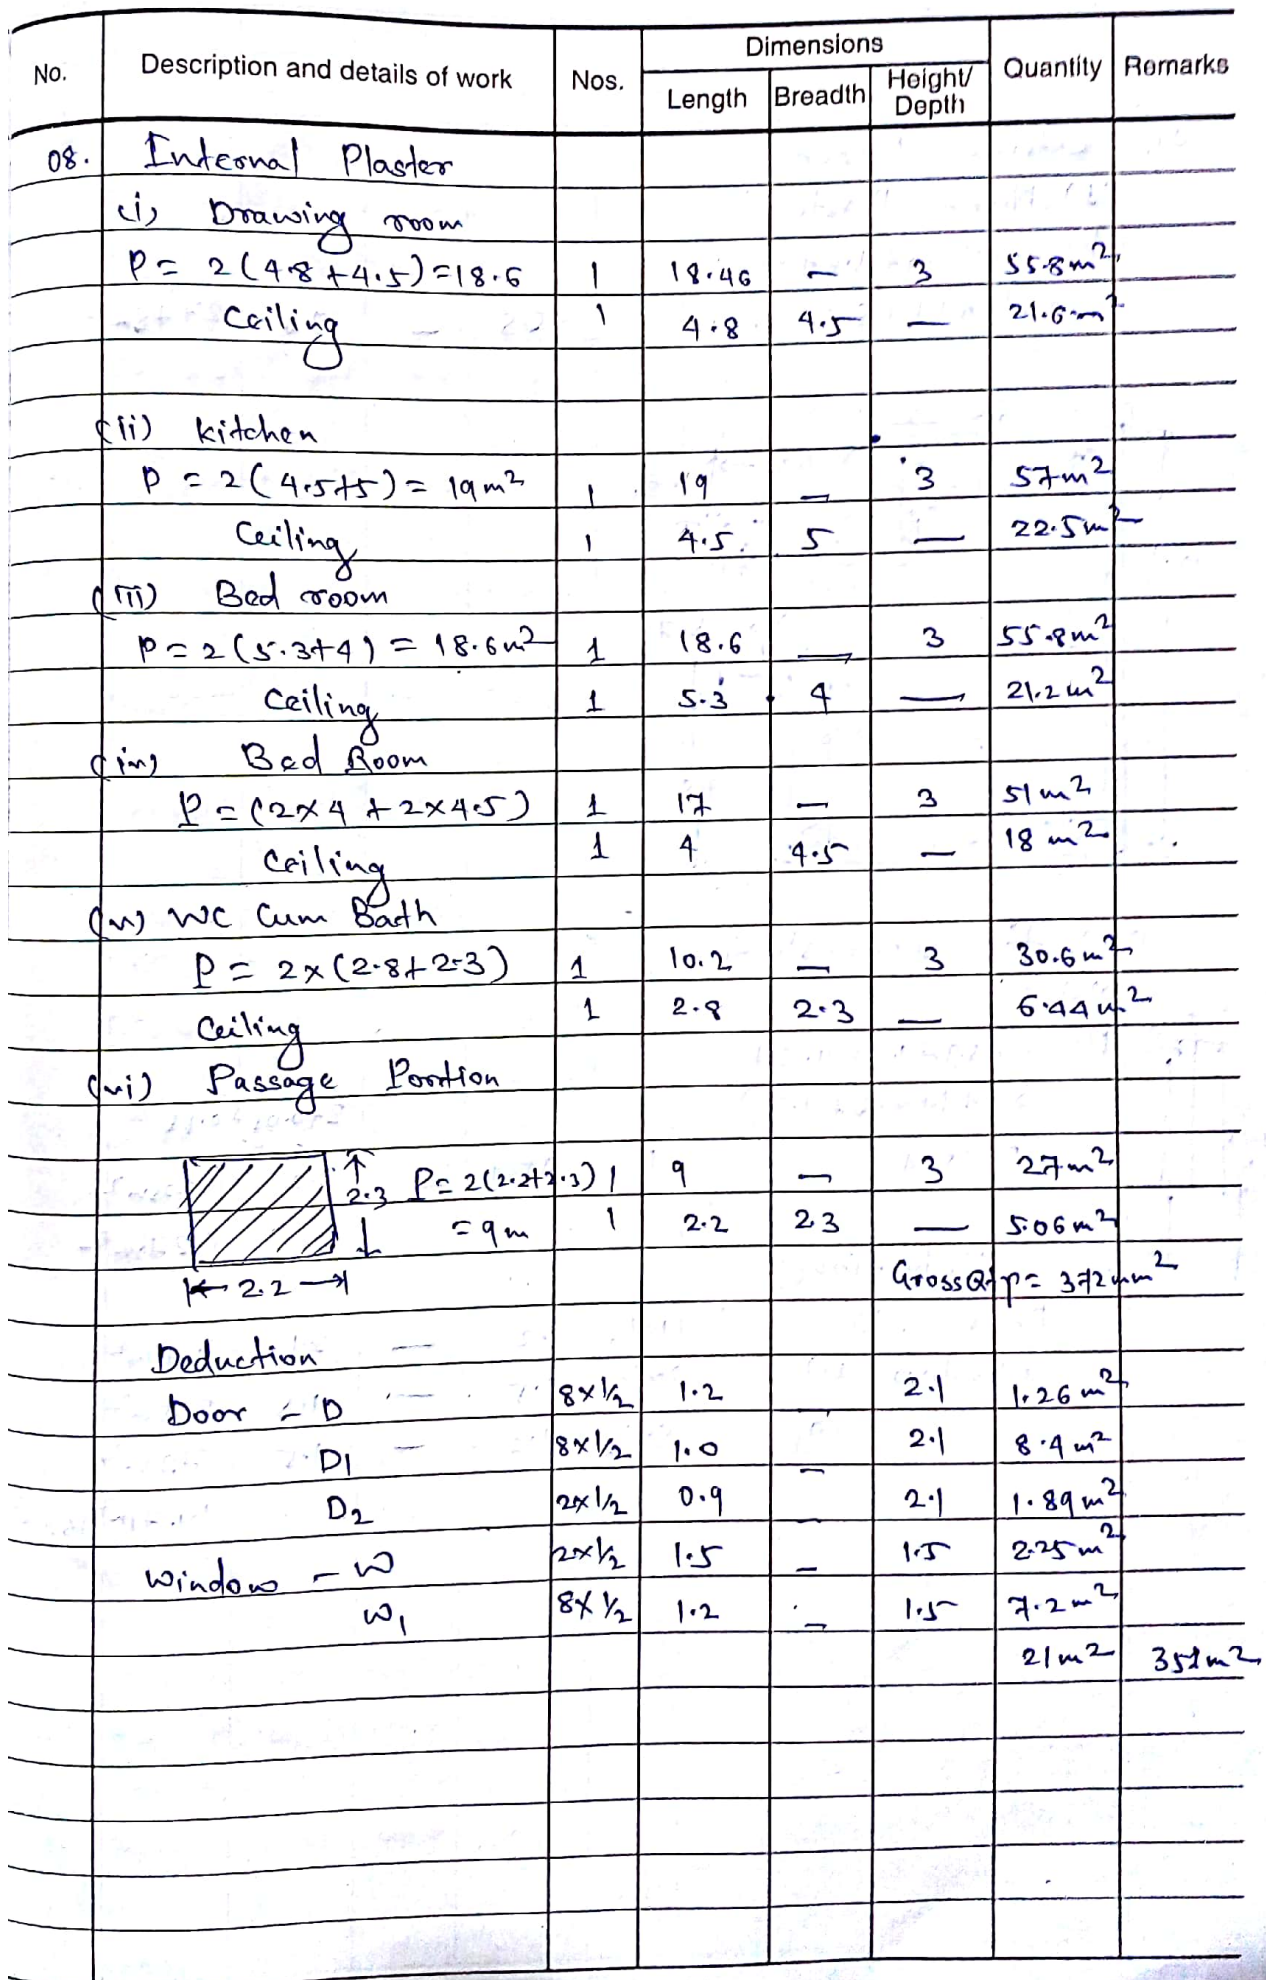 No. Description and details of work Nos. Dimensions Quantity Remarks
Length Breadth Height/ Depth
08. Internal Plaster
(i) Drawing room
P = 2(4.8+4.5)=18.6 1 18.46 — 3 55.8m2
Ceiling 1 4.8 4.5 — 21.6m2
(ii) kitchen
P = 2(4.5+5) = 19m2 1 19 — 3 57m2
Ceiling 1 4.5 5 — 22.5m2
(iii) Bed room
P = 2(5.3+4) = 18.6m2 1 18.6 — 3 55.8m2
Ceiling 1 5.3 4 — 21.2m2
(iv) Bed Room
P = (2x4 + 2x4.5) 1 17 — 3 51m2
Ceiling 1 4 4.5 — 18m2
(v) WC Cum Bath
P = 2x(2.8+2.3) 1 10.2 — 3 30.6m2
Ceiling 1 2.8 2.3 — 6.44m2
(vi) Passage Portion
2.3 P = 2(2.2+2.3) 1 9 — 3 27m2
= 9m 1 2.2 2.3 — 5.06m2
2.2 Gross Qty = 372
Deduction
Door - D 8x1/2 1.2 2.1 1.26m2
D1 8x1/2 1.0 — 2.1 8.4m2
D2 2x1/2 0.9 — 2.1 1.89m2
Window - W 2x1/2 1.5 — 1.5 2.25m2
W1 8x1/2 1.2 — 1.5 7.2m2
21m2 351m2